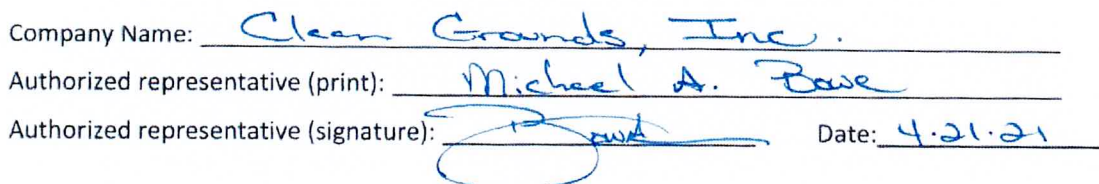 Company Name: Clean Grounds, Inc.
Authorized representative (print): Michael A. Bowe
Authorized representative (signature): Bowe Date: 4.21.21